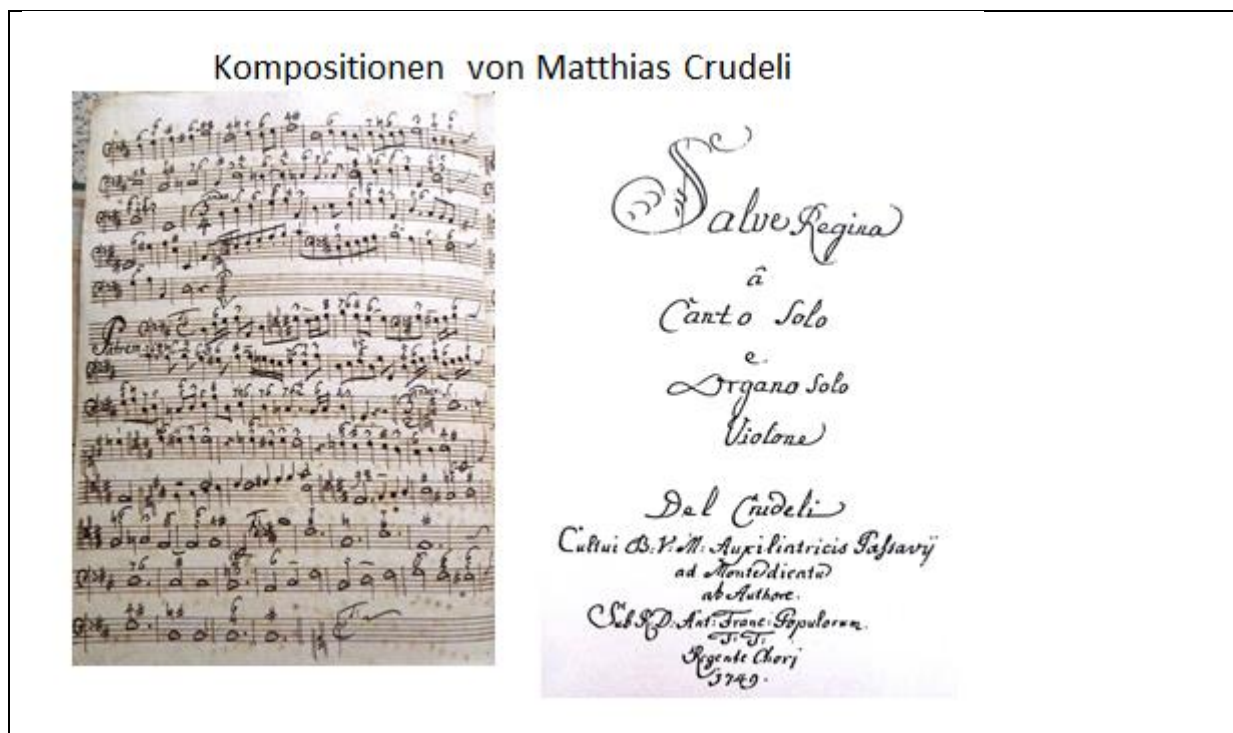 Kompositionen von Matthias Crudeli
Patrem
Salve Regina
â
Canto Solo
e.
Organo Solo
Violone
Del Crudeli
Cultui B: V: M: Auxiliatricis Passavij
ad Monte dicata
ab Authore.
Sub R D: Ant: Franc: Populorum.
T: T:
Regente Chorj
1749.